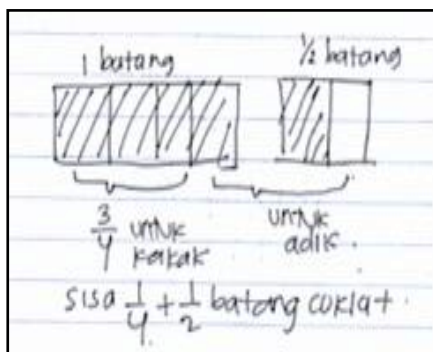 1 batang
½ batang
3/4 untuk
kakak
untuk
adik.
sisa 1/4 + 1/2 batang coklat.